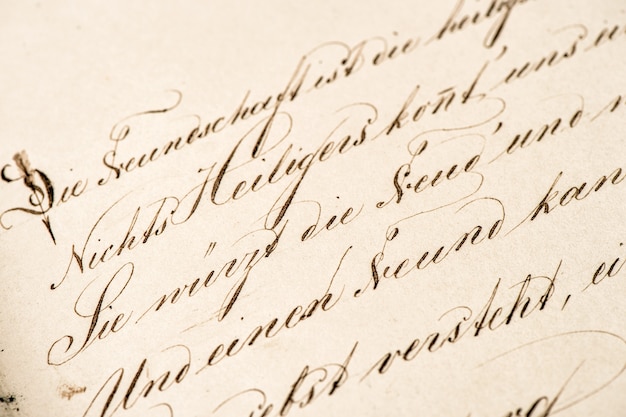 Die Freundschaft ist die heilig
Nichts Heiligers kont̄' uns
Sie würzt die Freud' und
Und einen Freund kan
selbst versteht, ei